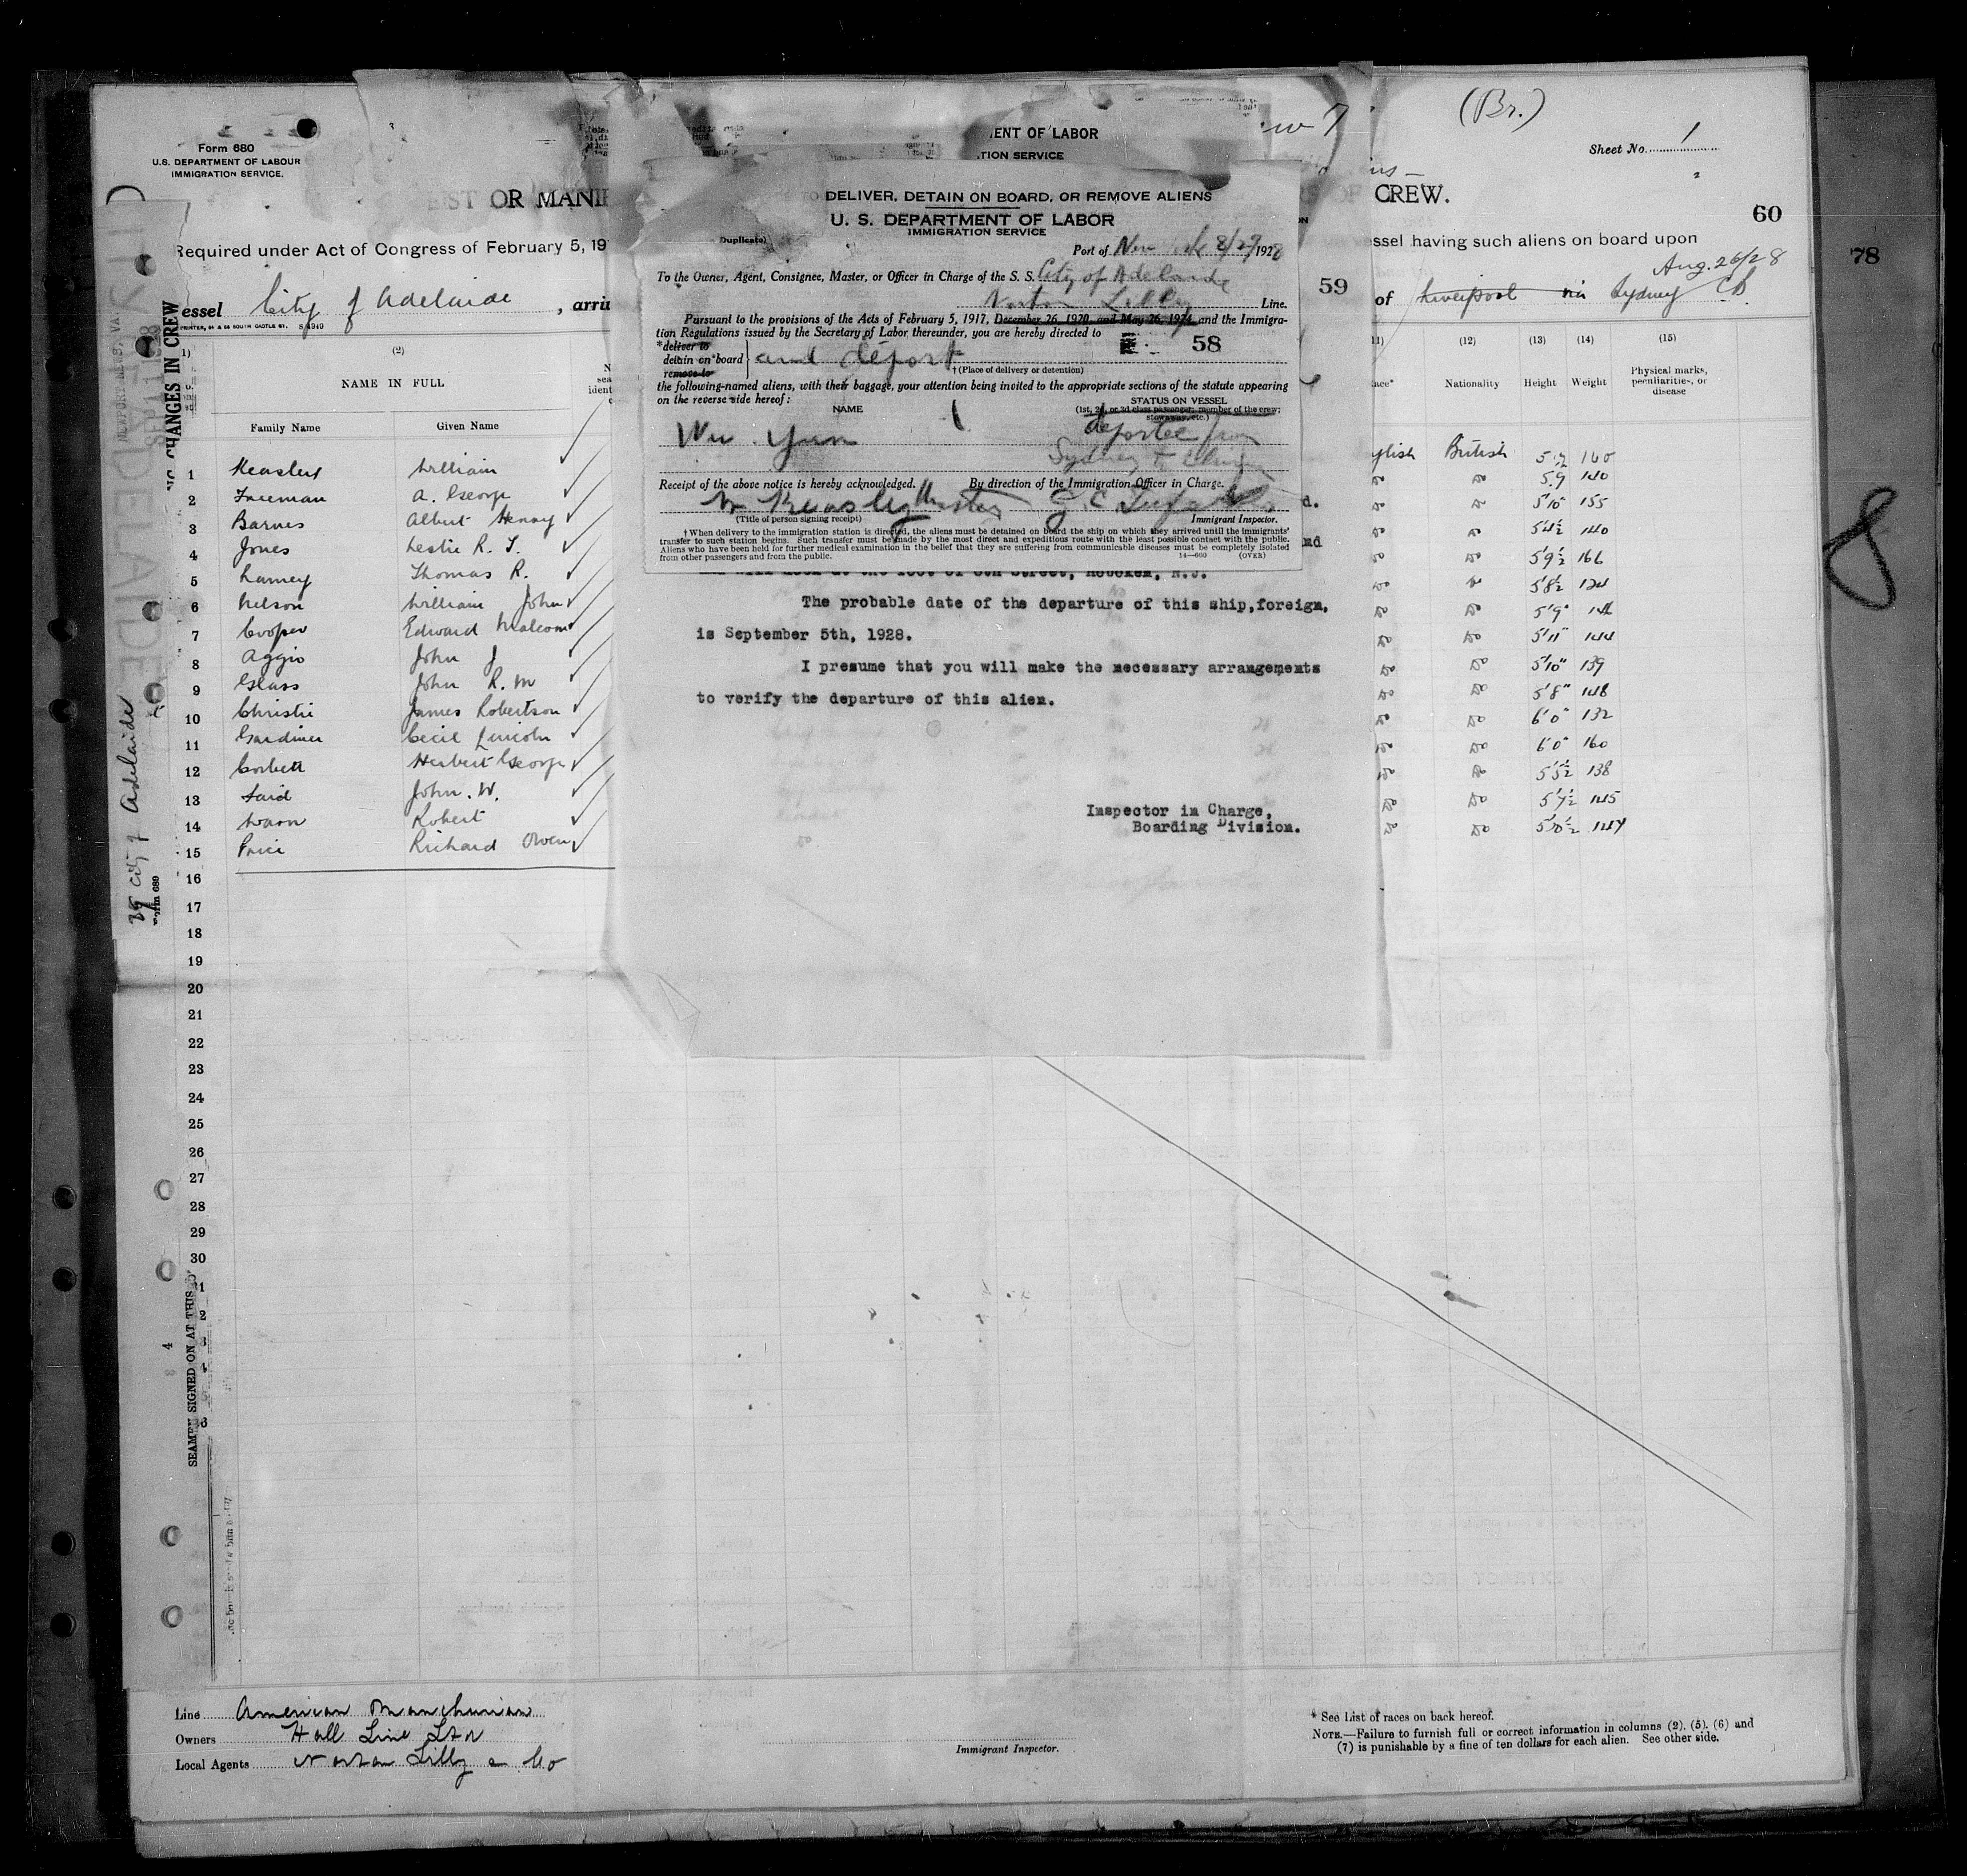 Form 680
U.S. DEPARTMENT OF LABOUR
IMMIGRATION SERVICE.
LIST OR MANIF
Required under Act of Congress of February 5, 19
essel City of Adelaide, arriv
(2)
NAME IN FULL
Family Name Given Name
1 Keasley William
2 Freeman A. George
3 Barnes Albert Henry
4 Jones Leslie R. T.
5 Lamey Thomas R.
6 Nelson William John
7 Cooper Edward Malcom
8 Aggio John J
9 Glass John R. M
10 Christie James Robertson
11 Gardiner Cecil Lincoln
12 Corbett Herbert George
13 Laird John. W.
14 Robert
15 Price Richard Owen
16
17
18
19
20
21
22
23
24
25
26
27
28
29
30
CHANGES IN CREW
City of Adelaide
SEAMEN SIGNED ON AT THIS
ENT OF LABOR
TION SERVICE
TO DELIVER, DETAIN ON BOARD, OR REMOVE ALIENS
U. S. DEPARTMENT OF LABOR
IMMIGRATION SERVICE
Duplicate)
Port of New York 8/27, 1928
To the Owner, Agent, Consignee, Master, or Officer in Charge of the S. S. City of Adelaide
Norton Lilly Line.
Pursuant to the provisions of the Acts of February 5, 1917, December 26, 1920, and May 26, 1924, and the Immigra-
tion Regulations issued by the Secretary of Labor thereunder, you are hereby directed to
*deliver to
detain on board and deport
remove to
†(Place of delivery or detention)
58
the following-named aliens, with their baggage, your attention being invited to the appropriate sections of the statute appearing
on the reverse side hereof:
NAME STATUS ON VESSEL
(1st, 2d, or 3d class passenger; member of the crew;
stowaway, etc.)
Wu Yun deportee from
Sydney to China
Receipt of the above notice is hereby acknowledged. By direction of the Immigration Officer in Charge.
W Keasley Master
(Title of person signing receipt) Immigrant Inspector.
†When delivery to the immigration station is directed, the aliens must be detained on board the ship on which they arrived until the immigrants'
transfer to such station begins. Such transfer must be made by the most direct and expeditious route with the least possible contact with the public.
Aliens who have been held for further medical examination in the belief that they are suffering from communicable diseases must be completely isolated
from other passengers and from the public. 14—600 (OVER)
59
The probable date of the departure of this ship,foreign,
is September 5th, 1928.
I presume that you will make the necessary arrangements
to verify the departure of this alien.
Inspector in Charge,
Boarding Division.
(Br.)
Sheet No. 1
CREW.
60
78
essel having such aliens on board upon
Aug. 26/28
of Liverpool via Sydney CB.
(12) (13) (14) (15)
Nationality Height Weight Physical marks, peculiarities, or disease
glish British 160
Do 5.9 140
Do 5'10 155
Do 5'4½ 140
Do 5'9½ 166
Do 5'8½ 124
Do 5'9"
Do 5'11" 144
Do 5'10" 139
Do 5'8" 148
Do 6'0" 132
Do 6'0" 160
Do 5'5½ 138
Do 5'7½ 145
Do 5'10½ 144
8
Line American Manchurian
Owners Hall Line Ltd
Local Agents Norton Lilly & Co
Immigrant Inspector.
* See List of races on back hereof.
NOTE.—Failure to furnish full or correct information in columns (2), (5), (6) and
(7) is punishable by a fine of ten dollars for each alien. See other side.